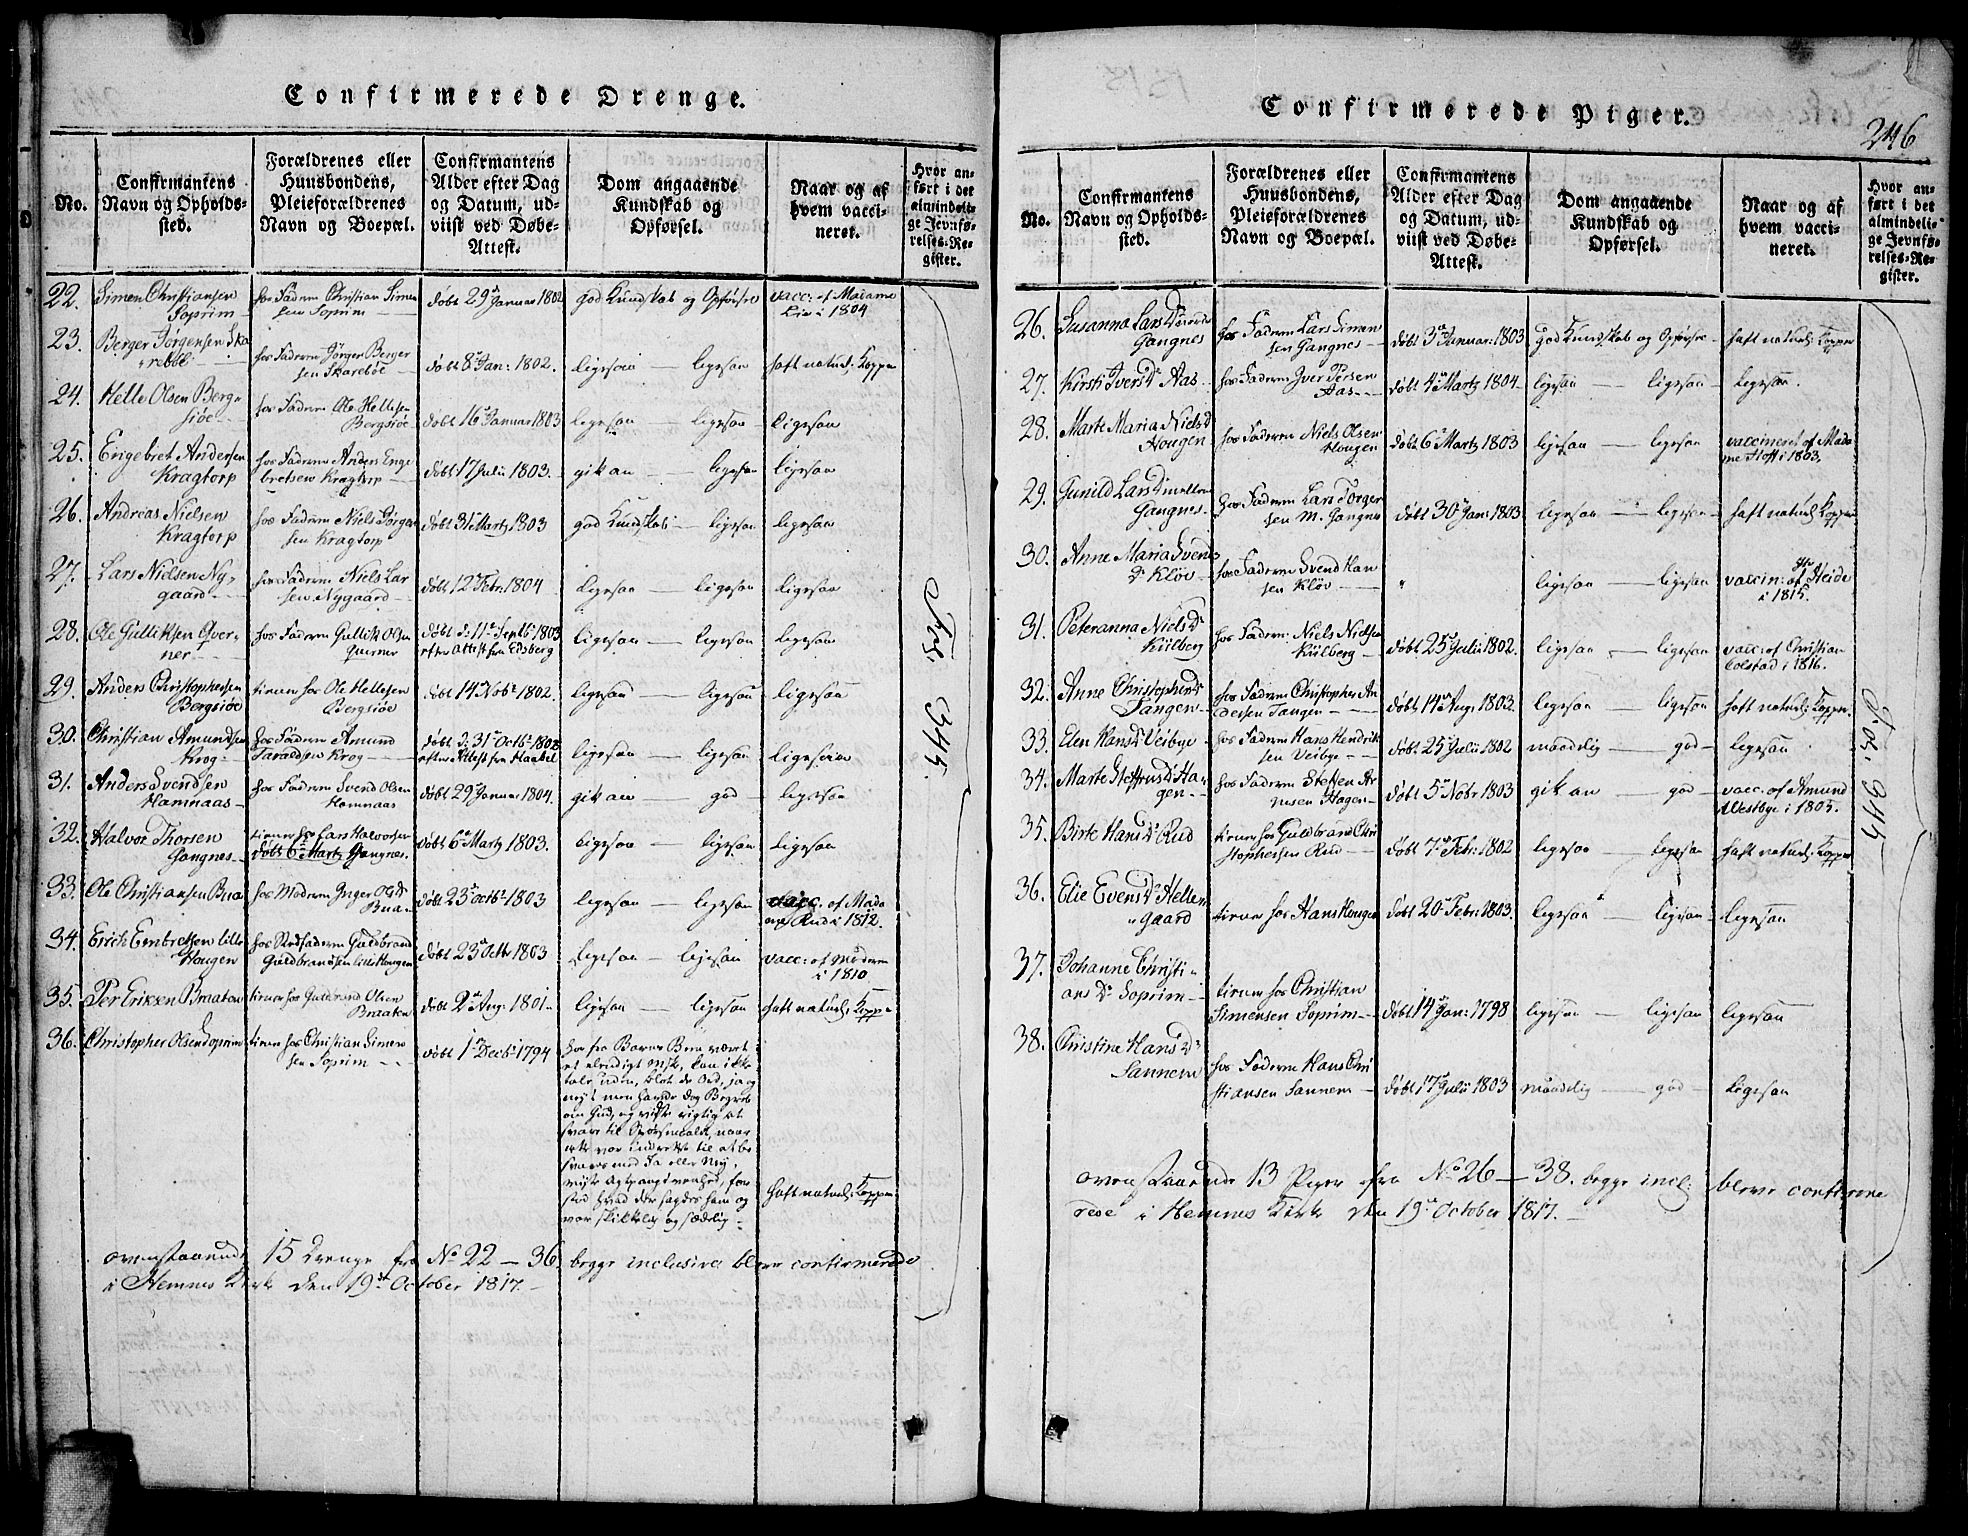 Confirmerede Drenge.
No.
Confirmantens Navn og Opholdssted.
Forældrenes eller Huusbondens, Pleieforældrenes Navn og Boepæl.
Confirmantens Alder efter Dag og Datum, udviist ved Døbe-Attest.
Dom angaaende Kundskab og Opførsel.
Naar og af hvem vaccineret.
Hvor anført i det almindelige Jevnførelses-Register.
22. Simen Christiansen Soprim hos Faderen Christian Simensen Soprim døbt 29de Januar 1802 god Kundskab og Opførsel vacc: af Madame Lie i 1804
23. Berger Jørgensen Skarebøe hos Faderen Jørgen Bergersen Skarebøe døbt 8de Jan: 1802. ligesaa ligesaa haft naturl: Kopper
24. Helle Olsen Bergsiøe hos Faderen Ole Hellesen Bergsiøe døbt 16de Januar 1803 ligesaa ligesaa ligesaa
25. Engebret Andersen Kragtorp hos Faderen Anders Engebretsen Kragtorp døbt 17 Julii 1803. gik an ligesaa ligesaa
26. Andreas Nielsen Kragtorp hos Faderen Niels Jørgensen Kragtorp døbt 31te Martz 1803 god Kundskab ligesaa ligesaa
27. Lars Nielsen Nygaard hos Faderen Niels Larsen Nygaard døbt 12te Febr: 1804 ligesaa ligesaa ligesaa
28. Ole Gulliksen Qverner hos Faderen Gullik Olsen Querner døbt d: 11te Septb 1803 efter Attest fra Edsberg ligesaa ligesaa ligesaa
29. Anders Christophersen Bergsiøe tiener hos Ole Hellesen Bergsiøe døbt 14 Nobr 1802. ligesaa ligesaa ligesaa
30. Christian Amundsen Krog hos Faderen Amund Taraldsen Krog døbt d: 31te Octbr 1802 efter Attest fra Haabøl ligesaa ligesaa ligesaa
31. Anders Svendsen Hamnaas hos Faderen Svend Olsen Hamnaas døbt 29de Januar 1804. gik an god ligesaa
32. Halvor Thorsen Gangnes tiener hos Lars Halvorsen Gangnes. døbt 6te Martz 1803. ligesaa ligesaa ligesaa
33. Ole Christiansen Braa hos Moderen Inger Olsdr Braa døbt 23de Octbr 1803 ligesaa ligesaa vacc. af Madame Rud i 1812.
34. Erich Embretsen lille Hougen hos Stedfaderen Guldbrand Guldbrandsen lille Hougen døbt 23de Octb 1803 ligesaa ligesaa vacc: af Moderen i 1810
35. Per Eriksen Braaten tiener hos Guldbrand Olsen Braaten døbt 2de Aug: 1801. ligesaa ligesaa haft naturl: Kopper
36. Christopher Olsen Soprim tiener hos Christian Simensen Soprim døbt 1te Decbr 1794
har fra Barns Been været
et elendigt Msk., kan ikke
tale, uden blot de Ord, ja og
nej; men havde dog Begreb
om Gud, og vidste rigtig at
svare til Spørsmaale, naar
de var indrettede til at be
svares med Ja eller Nej,
viiste Agtpaagivenhed, for
stod hvad der sagdes ham og
var skikkelig og sædelig
haft naturl: Kopper
Fol. 345.
ovenstaaende 15 Drenge fra No 22 — 36 begge inclusive bleve confirmerede
i Hemnes Kirke den 19de October 1817.
Confirmerede Piger.
246
No.
Confirmantens Navn og Opholdssted.
Forældrenes eller Huusbondens, Pleieforældrenes Navn og Boepæl.
Confirmantens Alder efter Dag og Datum, udviist ved Døbe-Attest.
Dom angaaende Kundskab og Opførsel.
Naar og af hvem vaccineret.
Hvor anført i det almindelige Jevnførelses-Register.
26. Susanna Larsdr Gangnes hos Faderen Lars Simensen Gangnes døbt 3de Januar: 1803 god Kundskab og Opførsel haft naturl: Kopper
27. Kirsti Iversdr Aas hos Faderen Iver Persen Aas døbt 4de Martz 1804 ligesaa ligesaa ligesaa.
28. Marte Maria Nielsdr Hougen hos Faderen Niels Olsen Hougen døbt 6te Martz 1803 ligesaa ligesaa vaccineret af Madame Hoff i 1803.
29. Gunild Larsdr mellem Gangnes hos Faderen Lars Torgersen M. Gangnes døbt 30te Jan: 1803 ligesaa ligesaa haft naturl: Kopper
30. Anne Maria Svendsdr Kløv hos Faderen Svend Hansen Kløv " ligesaa ligesaa vaccin: af Hr Heide i 1815.
31. Peteranna Nielsdr Külberg hos Faderen Niels Nielsen Külberg døbt 25de Julii 1802. ligesaa ligesaa vacc. af Christian Colstad i 1816.
32. Anne Christophersdr Tangen hos Faderen Christopher Andersen Tangen døbt 14de Aug: 1803. ligesaa ligesaa haft naturl: Kopper.
33. Elen Hansdr Veibye hos Faderen Hans Hendriksen Veibye døbt 25de Julii 1802 maadelig god ligesaa
34. Marte Steffensdr Hagen hos Faderen Steffen Arnesen Hagen døbt 5te Nobr 1803 gik an god vacc. af Amund Westbye i 1805.
35. Birte Hansdr Rud tiener hos Guldbrand Christophersen Rud døbt 7de Febr: 1802 ligesaa ligesaa haft naturl: Kopper
36. Elie Evensdr Hellengaard tiener hos Hans Hougen døbt 20de Febr: 1803. ligesaa ligesaa ligesaa
37. Johanne Christiansdr Soprim tiener hos Christian Simensen Soprim døbt 14de Jan: 1798 ligesaa ligesaa ligesaa
38. Christine Hansdr Sannem hos Faderen Hans Christiansen Sannem døbt 17de Julii 1803 maadelig god ligesaa
Fol. 345
ovenstaaende 13 Piger fra No 26 — 38. begge incl: bleve confirme
rede i Hemnes Kirke den 19de October 1817.